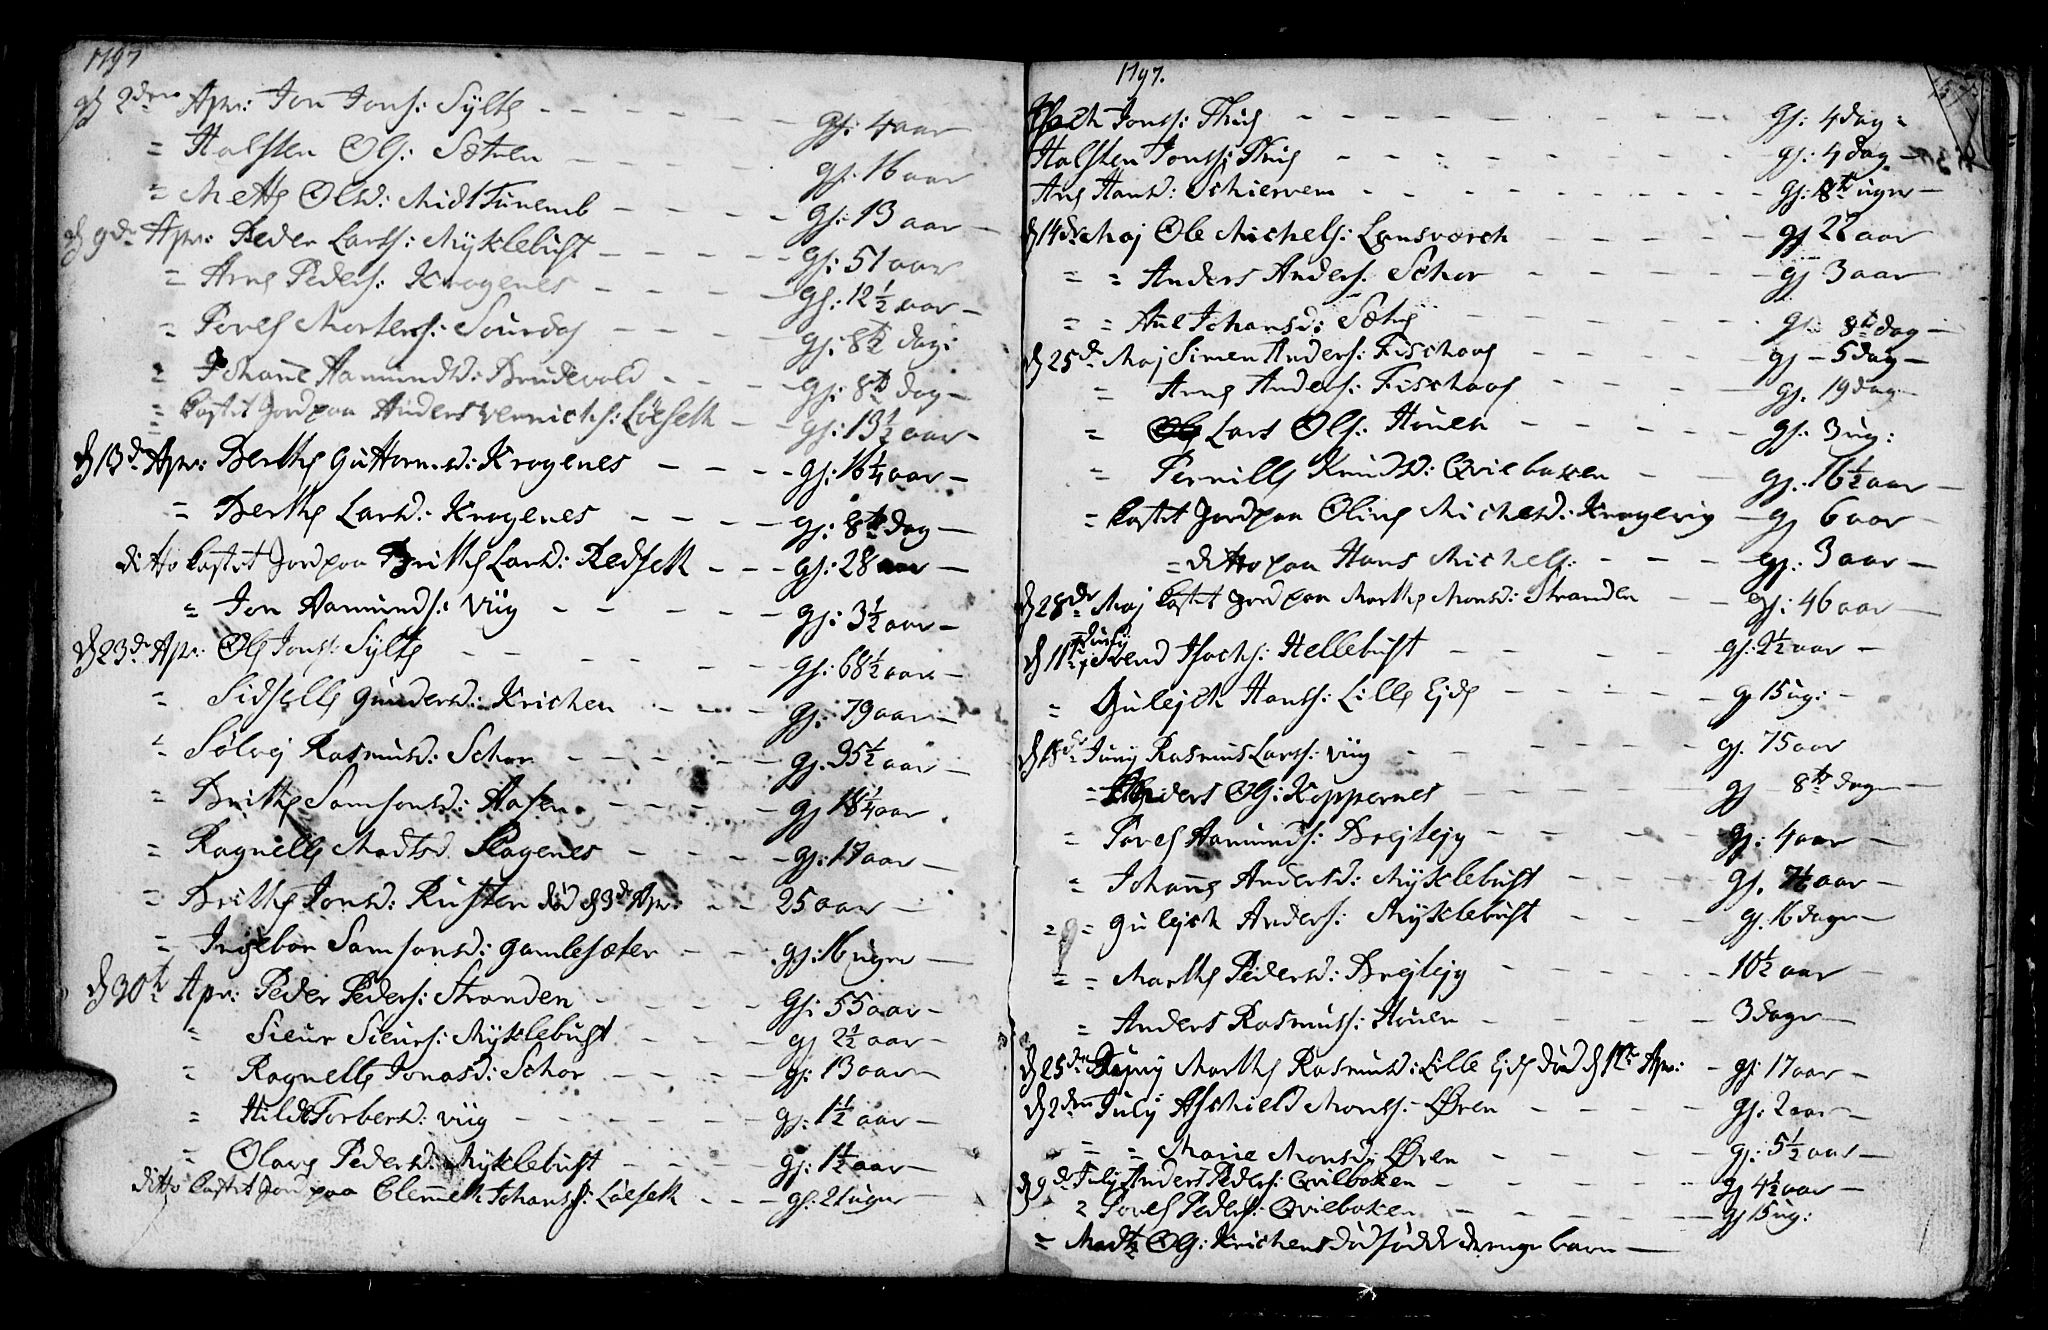 1797
d 2den Apr: Jon Jons: Sylte - - - gs: 4 aar
= Halsten Ols: Sætren - - - gs: 16 aar
= Mette Olsd: Midttunemb - - - gs: 13 aar
d 9de Apr: Peder Lars: Myklebust - - - gs: 51 aar
= Arne Peders: Kragenes - - - gs: 12 1/2 aar
= Poves Mortens: - - - gs: 8 1/2 dag:
= Johanne Aamundsd: Brudevold - - - gs: 8te dag
= Castet Jord paa Anders: Løeseth - - gs: 13 1/2 aar
d 13de Apr: Berthe Guttorms.d: Kragenes - - - gs: 16 1/4 aar
= Berthe Larsd: Kragenes - - - gs: 8te dag
ditto Castet Jord paa Britthe Larsd: Redseth - - - gs: 28 aar
= Jon Aamunds: Viig - - - gs: 3 1/2 aar
d 23de Apr: Ole Jons: Sylte - - - gs: 68 1/2 aar
= Sidselle Gundersd: Krichen - - - gs: 79 aar
= Sølvej Rasmusd: Schor - - - gs: 35 1/2 aar
= Britthe Samsonsd: Aasen - - - gs 18 1/4 aar
= Ragnelle Madtsd: Ragenes - - - gs: 17 aar
= Britthe Jonsd: Rusten død d 3de Apr: - - 25 aar
= Ingebor Samsonsd: Gamlesæter - - gs: 16 uger
d 30te Apr: Peder Peders: Stranden - - - gs: 55 aar
= Sieur Sieurs: Myklebust - - - gs 2 1/2 aar
= Ragnelle Jonasd: Schor - - - gs: 13 aar
= Hilde Torbersd: Viig - - - gs: 1 1/2 aar
= Olave Pedersd: Myklebust - - - gs: 1 1/2 aar
ditto Castet Jord paa Clemmet Johans: Løeseth - - - gs: 21 uger
1797.
157
Jons: Thue - - - gs: 4 dag
Halsten Jons: Thue - - - gs: 4 dag
Ane Hansd: Schiervem - - - gs: 8te uger
d 14de Maj Ole Michels: Lansværch - - - gs 22 aar
= = Anders Anders: Schor - - - gs 3 aar
= = Ane Johansd: Sætre - - - gs 8te dag
d 25de Maj Simen Anders: Fischaas - - - gs - 5 dag
= Arne Anders: Fischaas - - - gs. 19 dag
= Lars Ols: Houen - - - gs: 3 ug:
= Pernille Knudsd: Qvilbaken - - gs: 16 1/2 aar
= Castet Jord paa Oline Michelsd: Kragevig - gs 6 aar
= ditto paa Hans Michels: - - - gs: 3 aar
d 28de Maj Castet Jord paa Marthe Monsd: Stranden - - gs: 46 aar
d 11te Juny Svend Isachs: Hellebust - - - gs: 2 1/2 aar
= Gulejch Hans: Lille Ejde - - - gs 15 ug:
d 18de Juny Rasmus Lars: Viig - - - gs. 75 aar
= Anders Ols: Koppernes - - - gs 8te dage
= Poves Aamunds: Brejtejg - - - gs: 4 aar
= Johanne Andersd: Myklebust - - - gs. 7 1/2 aar
= = Gulejch Anders: Myklebust - - - gs. 16 dage
= = Marthe Pedersd: Brejtejg - - - 10 1/2 aar
= Anders Rasmus: Houen - - - 3 dage
d 25de Juny Marthe Rasmusd: Lille Ejde død d 12te Apr: - gs: 17 aar
d 2den July Aschield Mons: Øren - - - gs: 2 aar
= = Marie Monsd: Øren - - - gs: 5 1/2 aar
d 9de July Anders Peders: Qvilbaken - - - gs 4 1/2 aar
= Poves Peders: Qvilbaken - - - gs 15 ug:
= Madtz Ols: Krichens dødfødde drenge barn